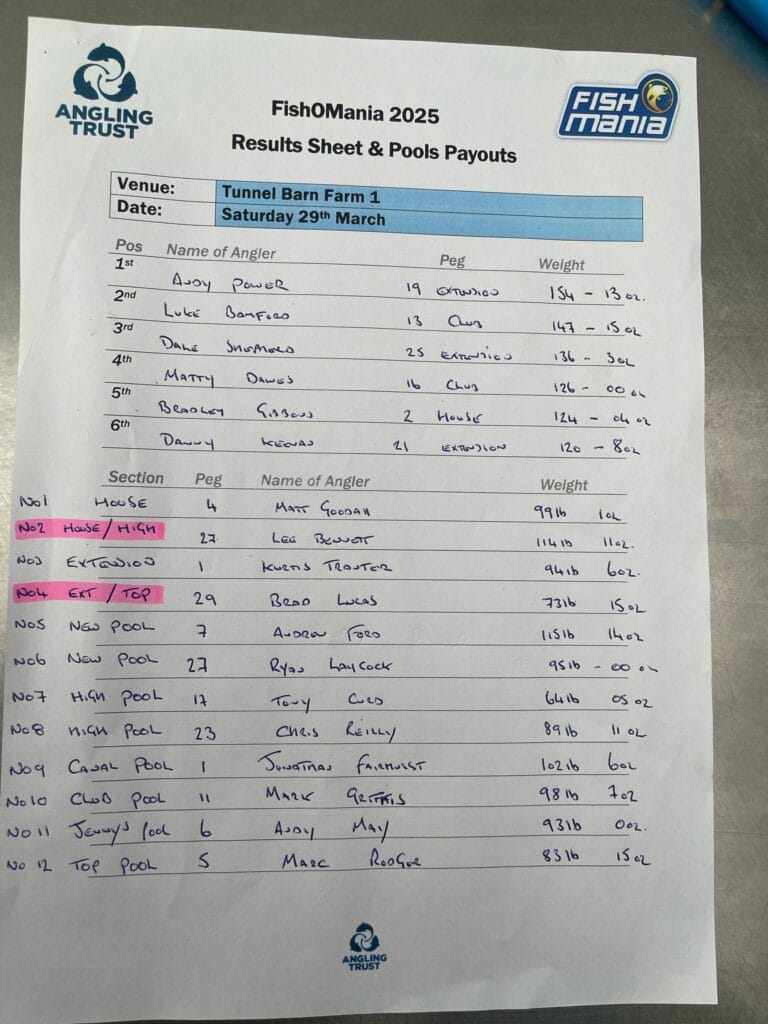 ANGLING TRUST
FISH MANIA
FishOMania 2025
Results Sheet & Pools Payouts
Venue: Tunnel Barn Farm 1
Date: Saturday 29th March
Pos Name of Angler Peg Weight
1st ANDY POWER 19 EXTENSION 154 - 13 oz.
2nd LUKE BAMFORD 13 CLUB 147 - 15 oz
3rd DALE SHEPHERD 25 EXTENSION 136 - 3 oz
4th MATTY DAWES 16 CLUB 126 - 00 oz
5th BRADLEY GIBBONS 2 HOUSE 124 - 04 oz
6th DANNY KEENAN 21 EXTENSION 120 - 8 oz
Section Peg Name of Angler Weight
No1 HOUSE 4 MATT GODDAH 99 lb 1 oz
No2 HOUSE / HIGH 27 LEE BENNETT 114 lb 11 oz.
No3 EXTENSION 1 KURTIS TROTTER 94 lb 6 oz.
No4 EXT / TOP 29 BRAD LUCAS 73 lb 15 oz
No5 NEW POOL 7 ANDREW FORD 115 lb 14 oz
No6 NEW POOL 27 RYAN LAYCOCK 95 lb - 00 oz
No7 HIGH POOL 17 TONY CURD 64 lb 05 oz
No8 HIGH POOL 23 CHRIS REILLY 89 lb 11 oz
No9 CANAL POOL 1 JONATHAN FAIRHURST 102 lb 6 oz
No 10 CLUB POOL 11 MARK 98 lb 7 oz
No 11 Jenny's Pool 6 ANDY MAY 93 lb 0 oz.
No 12 TOP POOL 5 MARC 83 lb 15 oz
ANGLING TRUST